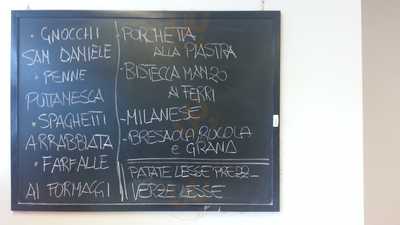 • GNOCCHI
SAN DANIELE
• PENNE
PUTTANESCA
• SPAGHETTI
ARRABBIATA
• FARFALLE
AI FORMAGGI
• PORCHETTA
ALLA PIASTRA
• BISTECCA MANZO
AI FERRI
- MILANESE
- BRESAOLA RUCOLA
e GRANA
PATATE LESSE PREZZ_
VERZE LESSE